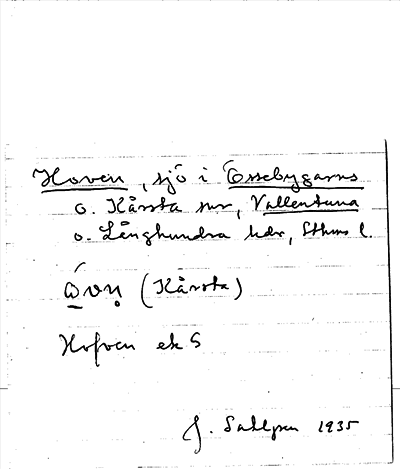 Hoven, sjö i Össebygarns
o. Kårsta snr, Vallentuna
o. Långhundra hdr, Sthms l.
ώvṇ (Kårsta)
Hofven ek S
J. Sahlgren 1935